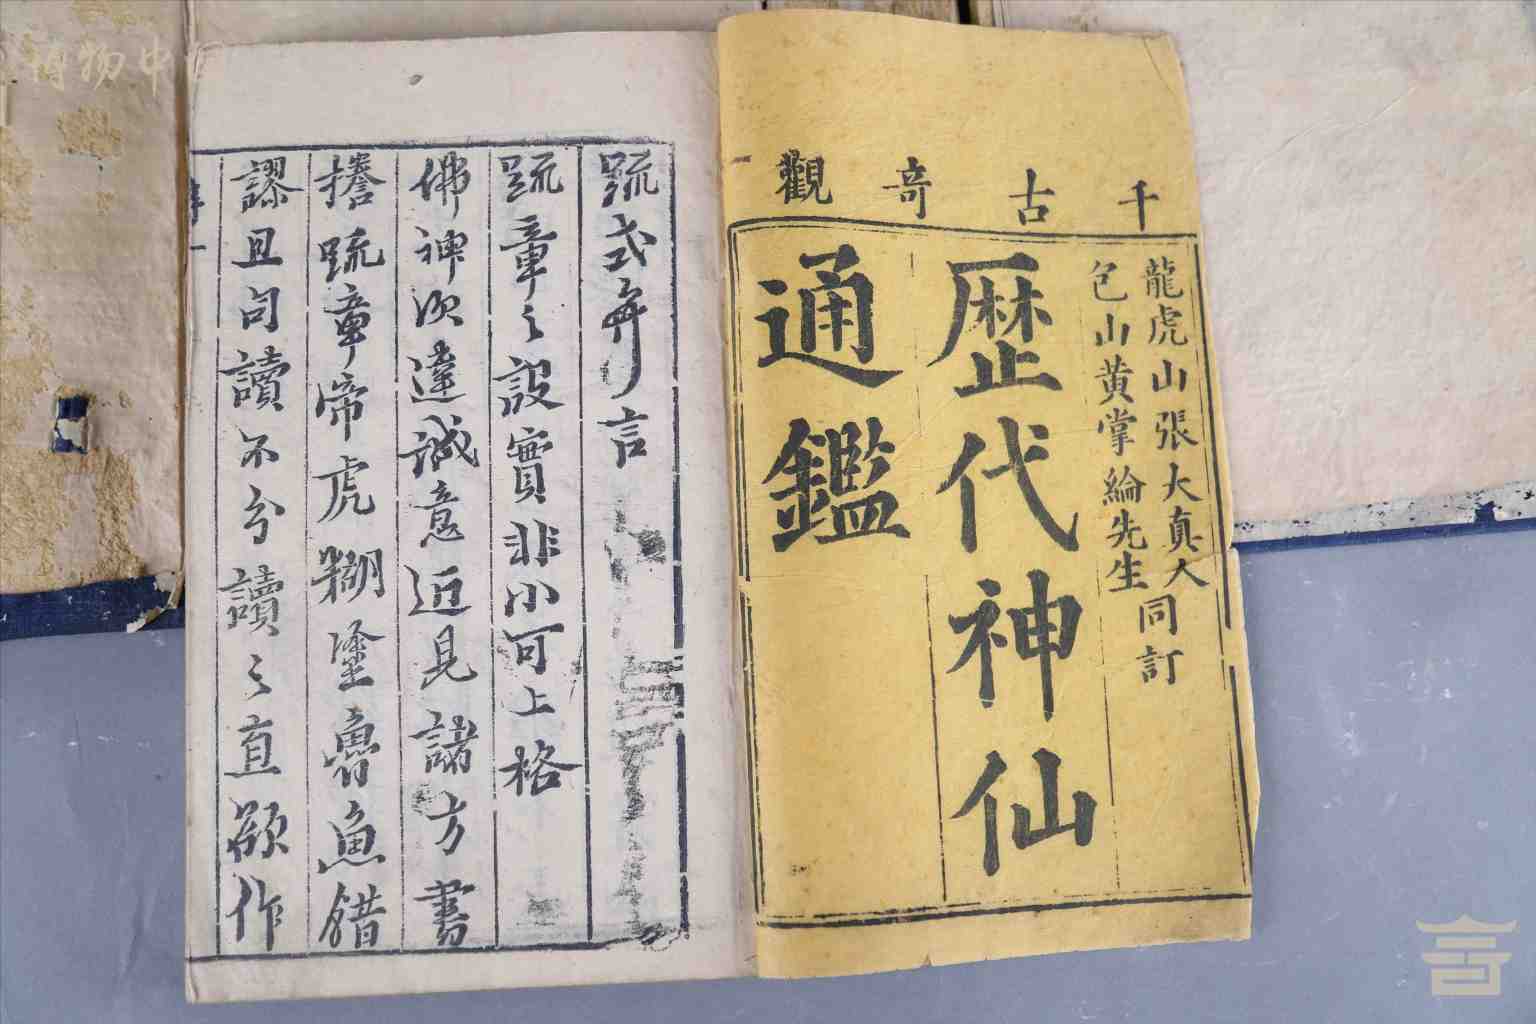 千古奇觀
龍虎山張大真人
包山黃掌綸先生
同訂
歷代神仙
通鑑
疏式弁言
疏章之設實非小可上格
佛神次達誠意近見諸方書
搢疏章帝虎糊塗魯魚錯
謬且句讀不分讀之直欲作
博物中